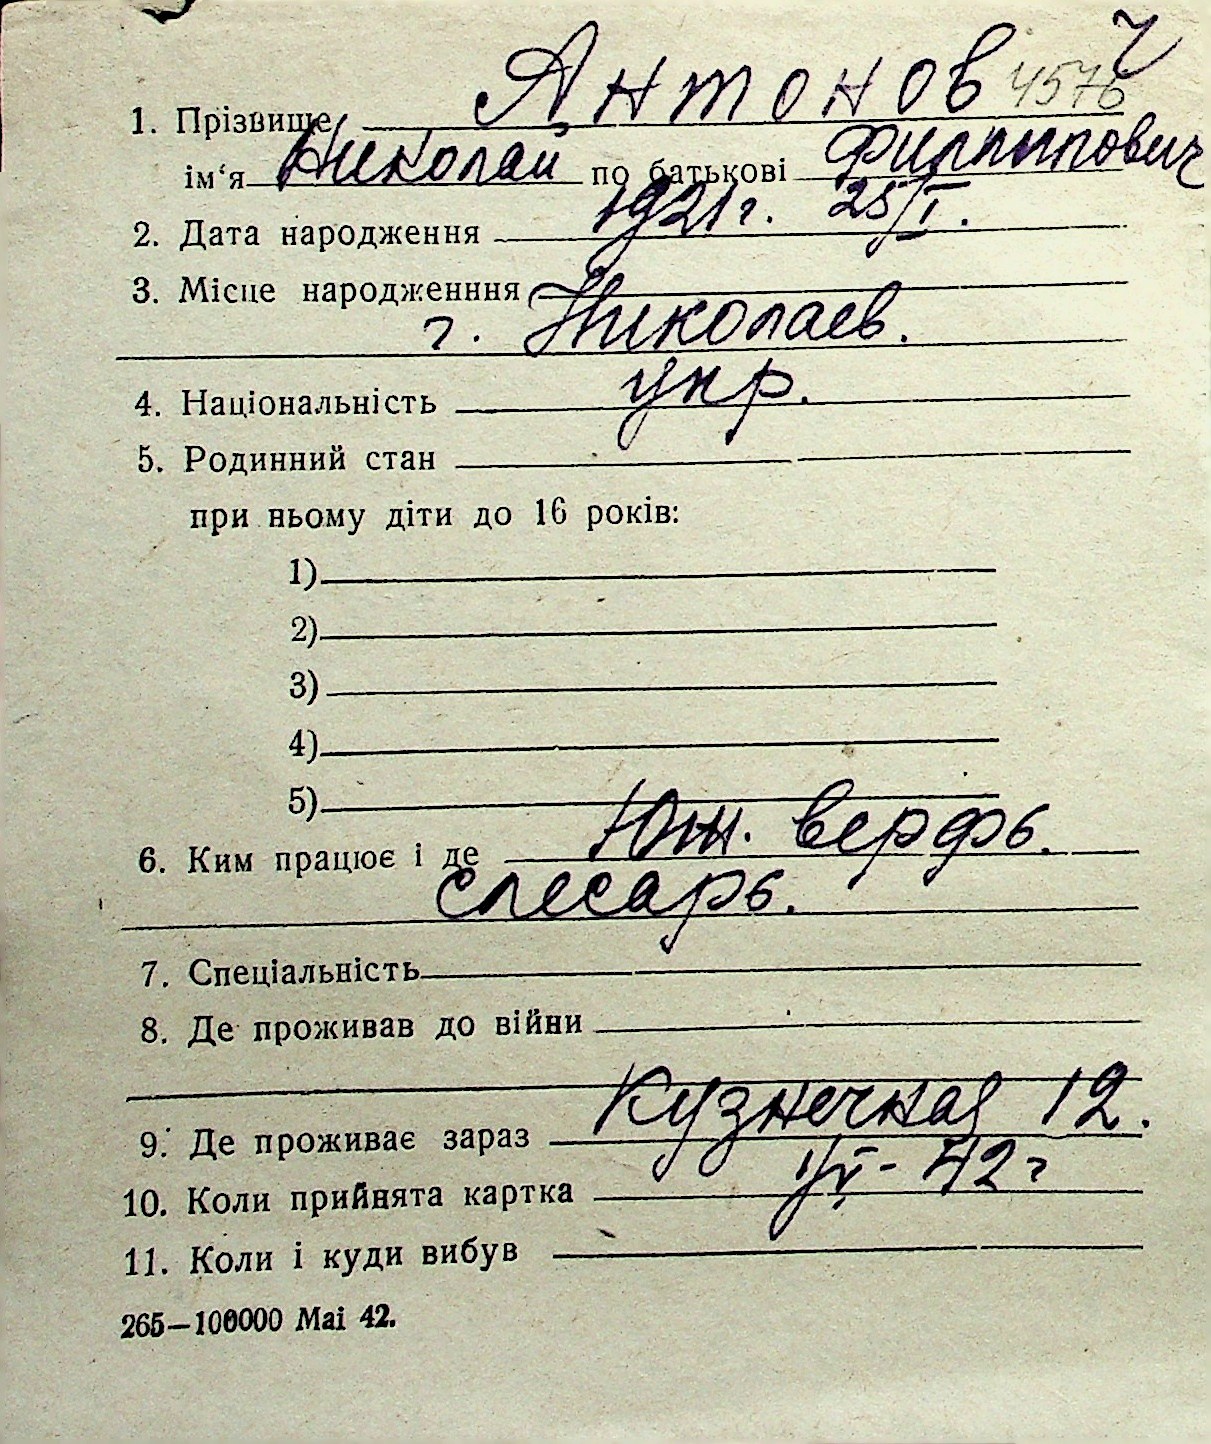 Ч
1. Прізвище Антонов 4576
ім‘я Николай по батькові Филиппович
2. Дата народження 1921 г. 25/I.
3. Місце народженння
г. Николаев.
4. Національність укр.
5. Родинний стан
при ньому діти до 16 років:
1)
2)
3)
4)
5)
6. Ким працює і де Юж. верфь.
слесарь.
7. Спеціальність
8. Де проживав до війни
9. Де проживає зараз Кузнечная 12.
10. Коли прийнята картка 1/V - 42 г
11. Коли і куди вибув
265—100000 Маі 42.